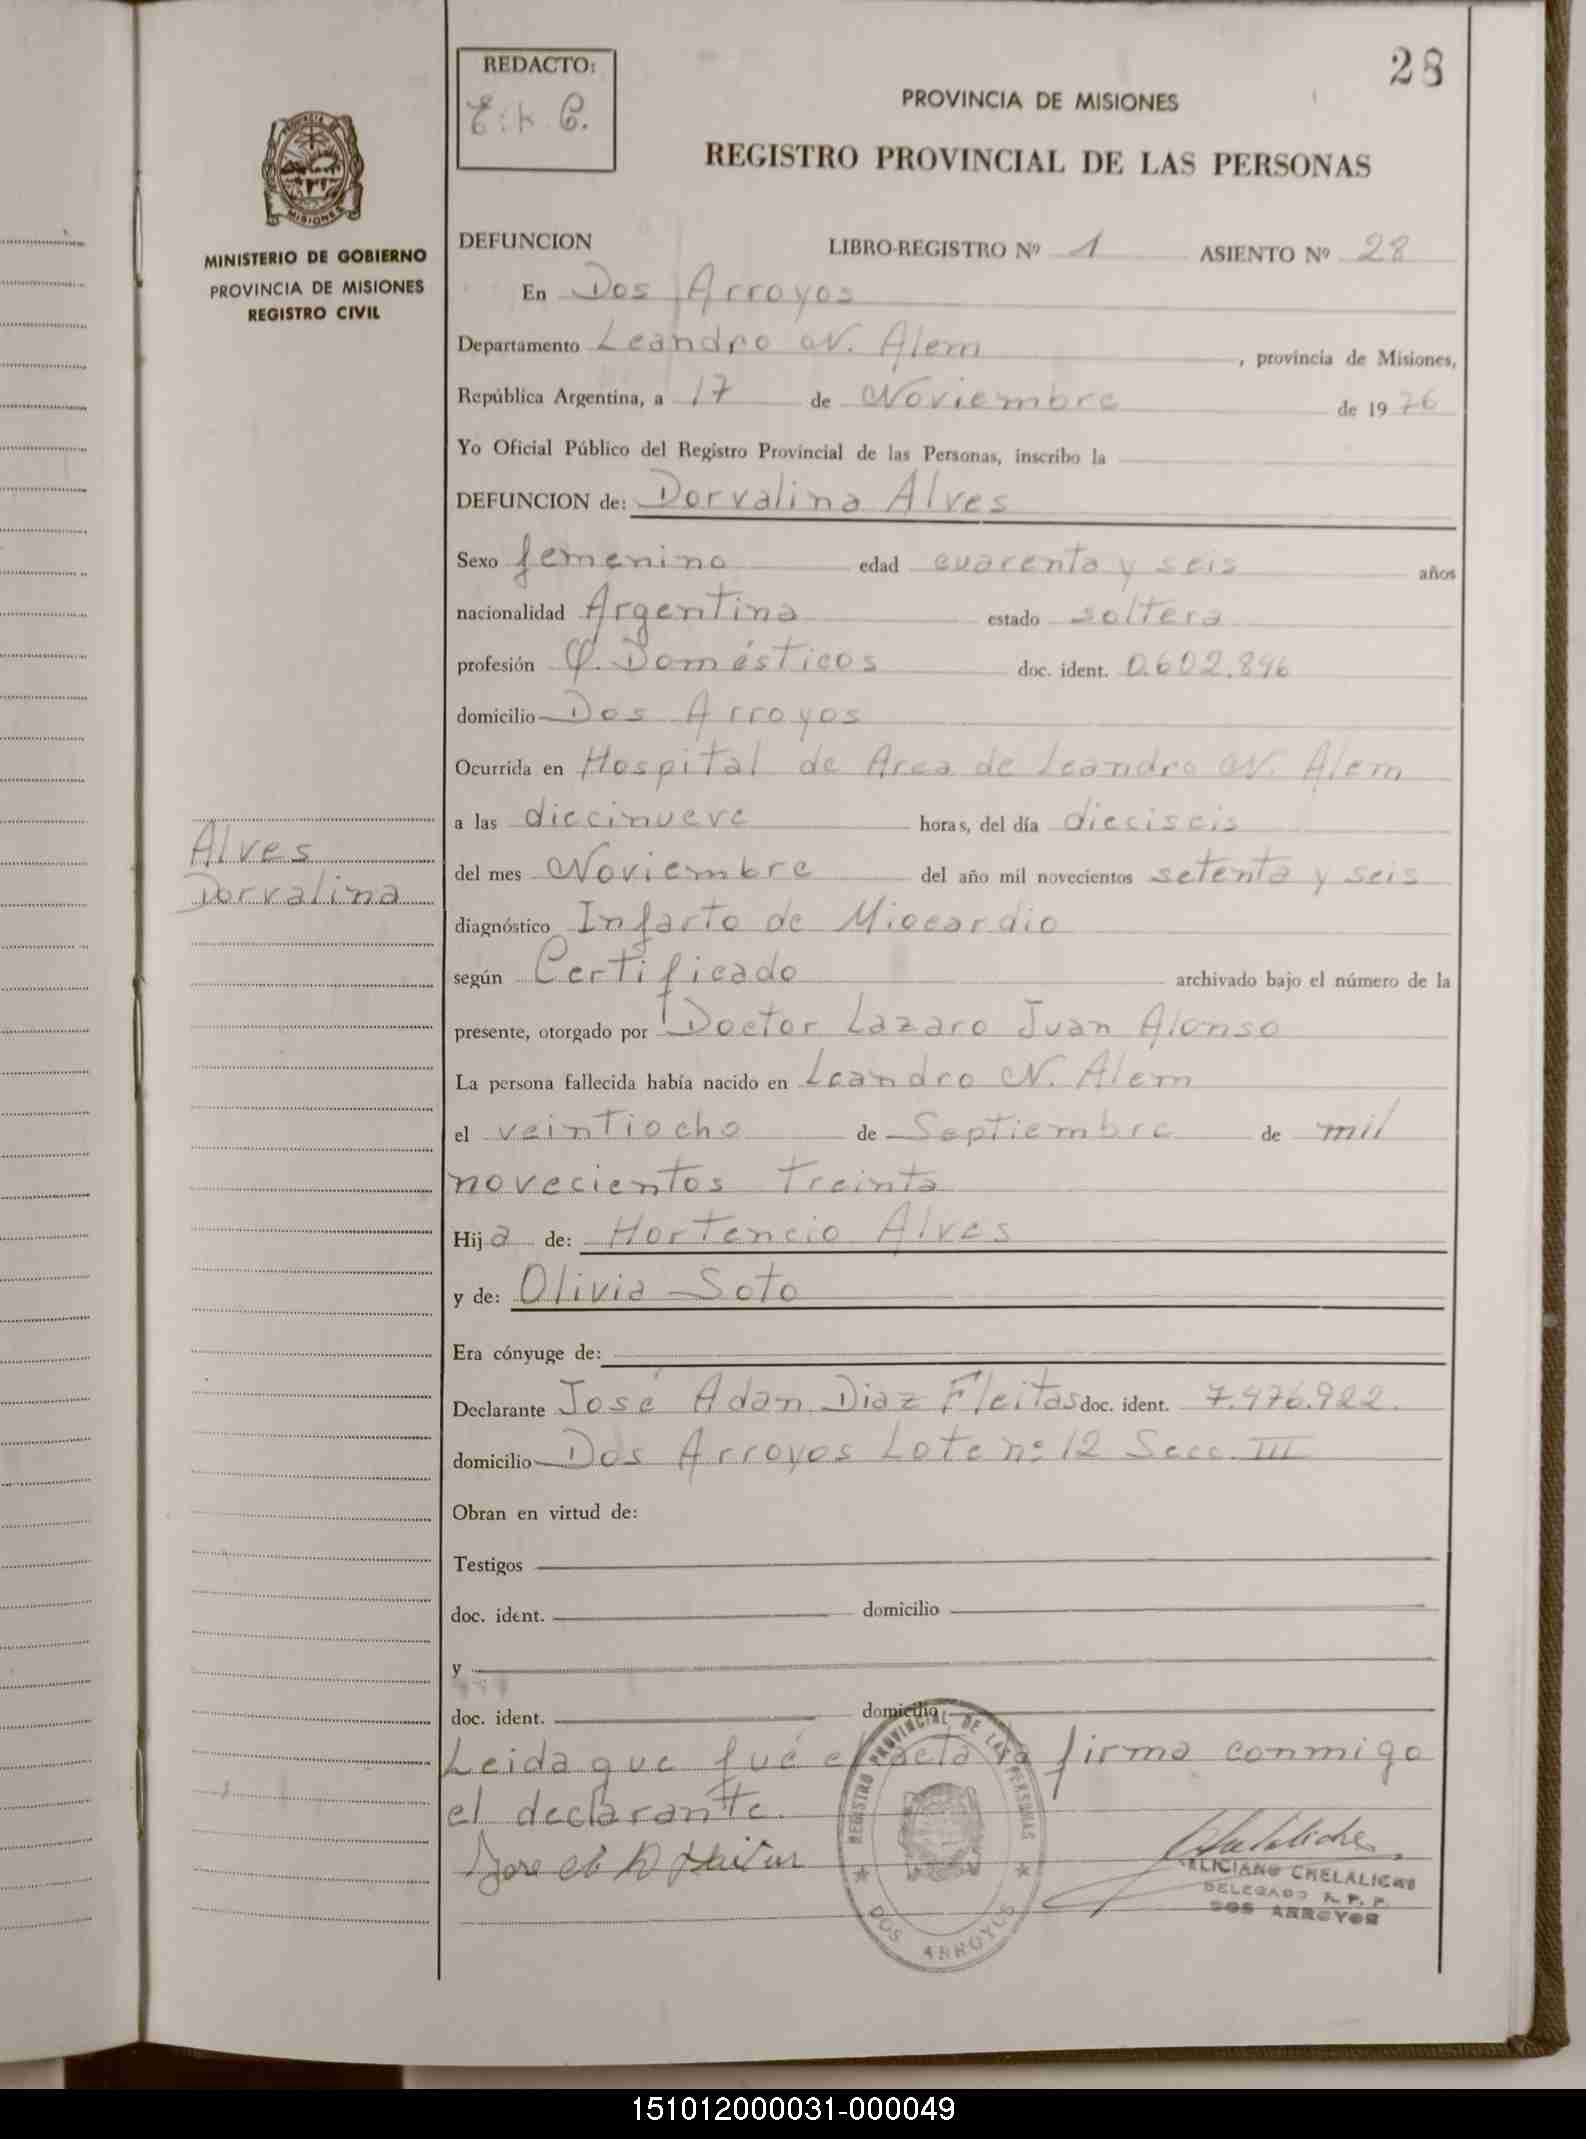 28
REDACTO:
E. K. C.
PROVINCIA DE MISIONES
REGISTRO PROVINCIAL DE LAS PERSONAS
MINISTERIO DE GOBIERNO
PROVINCIA DE MISIONES
REGISTRO CIVIL
MISIONES
DEFUNCION LIBRO-REGISTRO Nº 1 ASIENTO Nº 28
En Dos Arroyos
Departamento Leandro N. Alem, provincia de Misiones,
República Argentina, a 17 de Noviembre de 1976
Yo Oficial Público del Registro Provincial de las Personas, inscribo la
DEFUNCION de: Dorvalina Alves
Sexo femenino edad cuarenta y seis años
nacionalidad Argentina estado soltera
profesión Q. Domésticos doc. ident. 0.602.896
domicilio Dos Arroyos
Ocurrida en Hospital de Area de Leandro N. Alem
a las diecinueve horas, del día dieciseis
Alves
Dorvalina
del mes Noviembre del año mil novecientos setenta y seis
diagnóstico Infarto de Miocardio
según Certificado archivado bajo el número de la
presente, otorgado por Doctor Lazaro Juan Alonso
La persona fallecida había nacido en Leandro N. Alem
el veintiocho de Septiembre de mil
novecientos treinta
Hija de: Hortencio Alves
y de: Olivia Soto
Era cónyuge de:
Declarante José Adan Diaz Fleitas doc. ident. 7.476.922.
domicilio Dos Arroyos Lote nº 12 Secc. III
Obran en virtud de:
Testigos
doc. ident. domicilio
y
doc. ident. domicilio
Leida que fué el acta la firma conmigo
el declarante.
REGISTRO PROVINCIAL DE LAS PERSONAS
DOS ARROYOS
CHELALICHE
DELEGADO R. P. P.
DOS ARROYOS
151012000031-000049